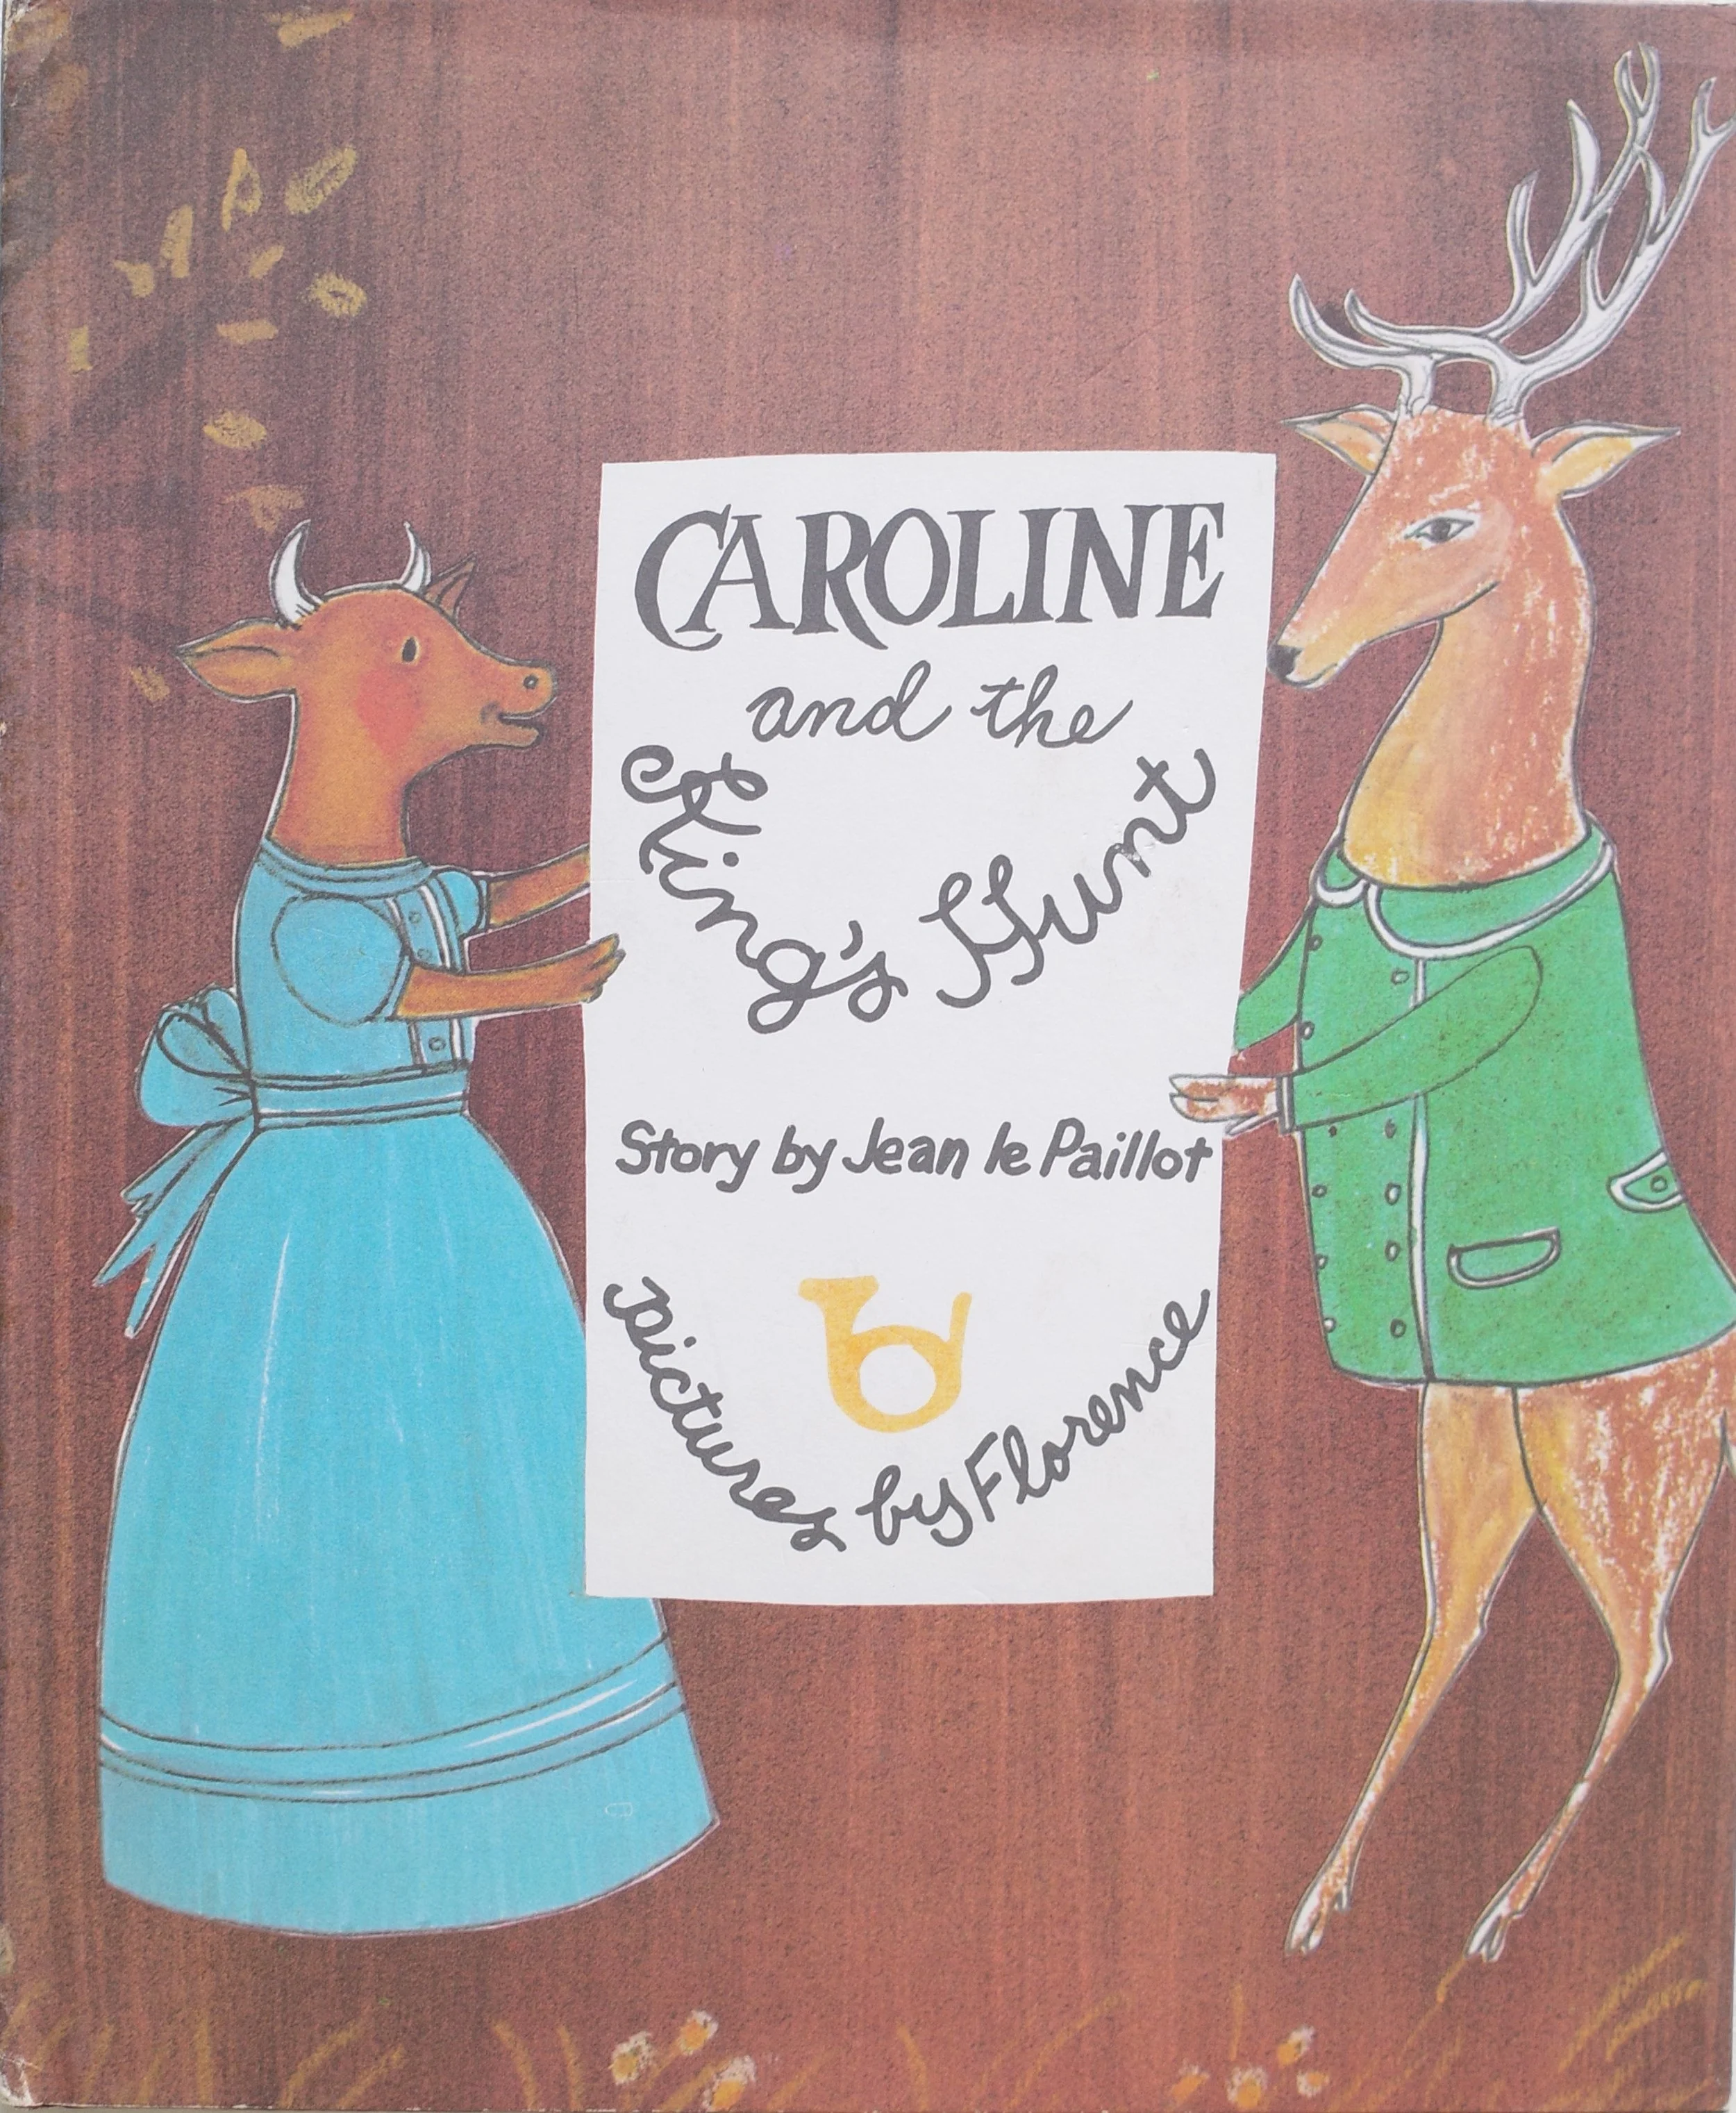 CAROLINE
and the
King's Hunt
Story by Jean le Paillot
pictures by Florence